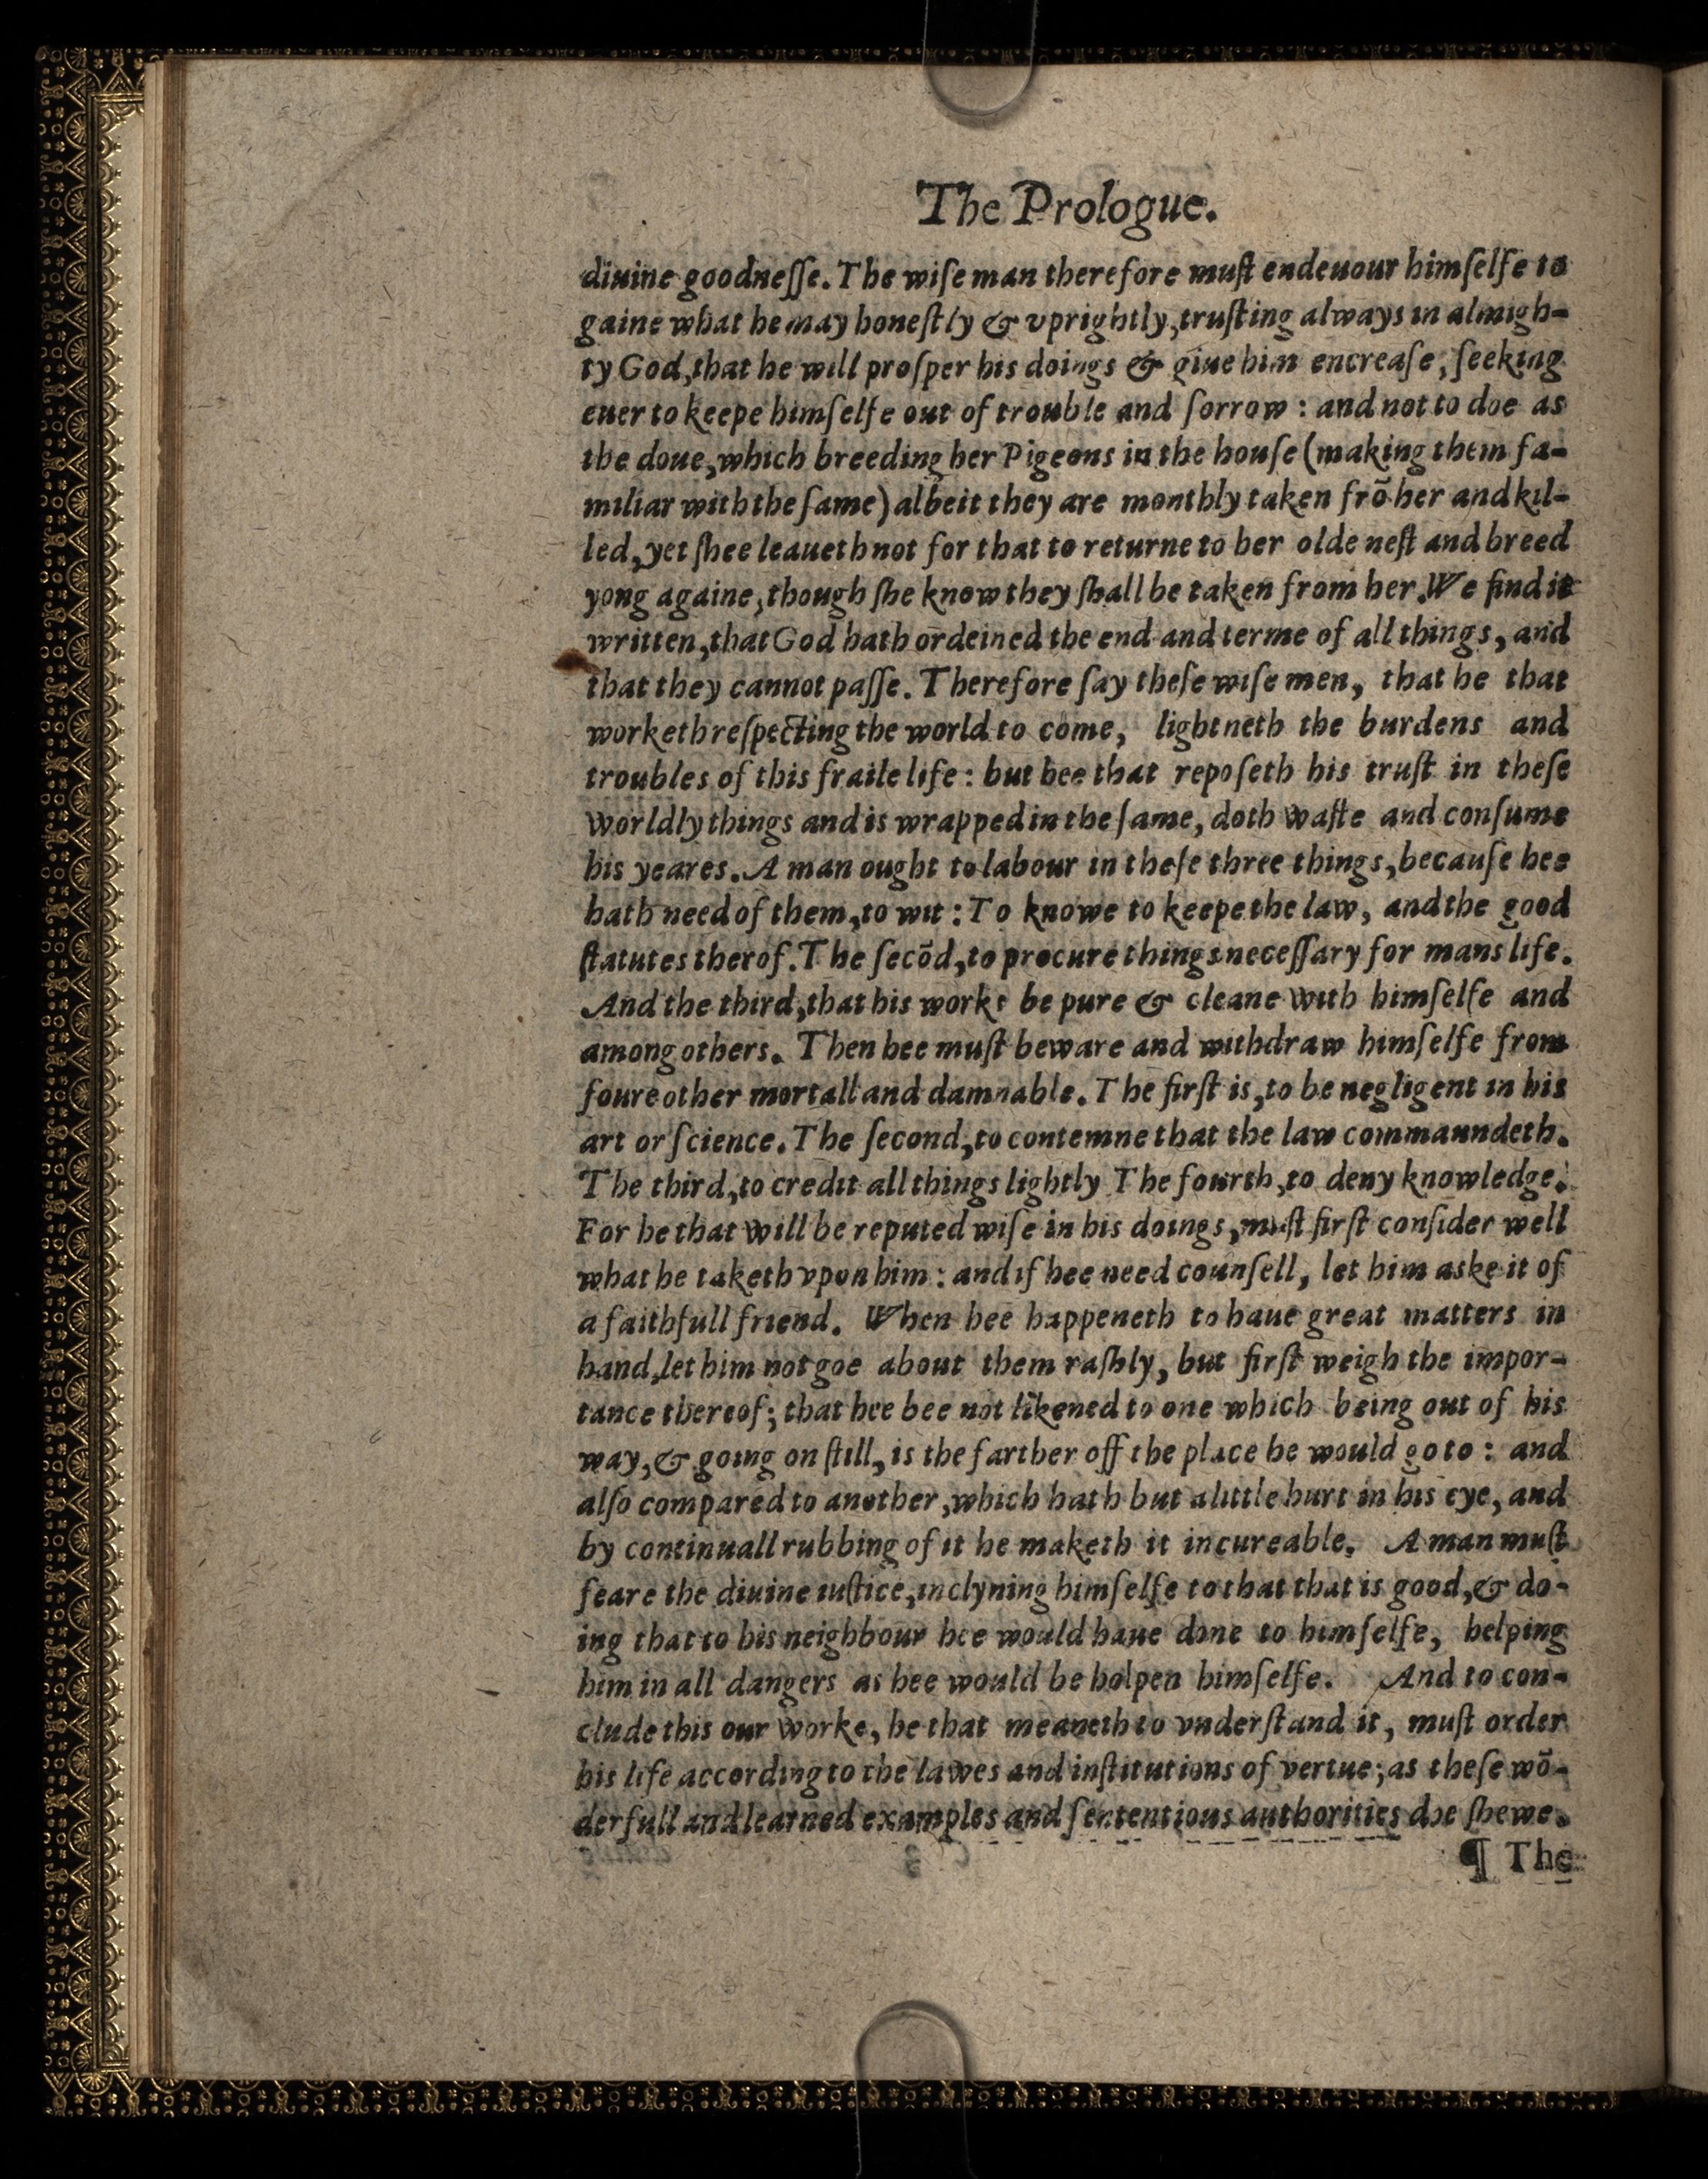 The Prologue.
diuine goodneſſe. The wiſe man therefore muſt endeuour himſelfe to
gaine what he may honeſtly & vprightly, truſting always in almigh-
ty God, that he will proſper his doings & giue him encreaſe, ſeeking
euer to keepe himſelfe out of trouble and ſorrow : and not to doe as
the doue, which breeding her Pigeons in the houſe (making them fa-
miliar with the ſame) albeit they are monthly taken frõ her and kil-
led, yet ſhee leaueth not for that to returne to her olde neſt and breed
yong againe, though ſhe know they ſhall be taken from her. We find it
written, that God hath ordeined the end and terme of all things, and
that they cannot paſſe. Therefore ſay theſe wiſe men, that he that
worketh reſpecting the world to come, lightneth the burdens and
troubles of this fraile life : but hee that repoſeth his truſt in theſe
worldly things and is wrapped in the ſame, doth waſte and conſume
his yeares. A man ought to labour in theſe three things, becauſe hee
hath need of them, to wit : To knowe to keepe the law, and the good
ſtatutes therof. The ſecõd, to procure things neceſſary for mans life.
And the third, that his worke be pure & cleane with himſelfe and
among others. Then hee muſt beware and withdraw himſelfe from
foure other mortall and damnable. The firſt is, to be negligent in his
art or ſcience. The ſecond, to contemne that the law commaundeth.
The third, to credit all things lightly The fourth, to deny knowledge.
For he that will be reputed wiſe in his doings, muſt firſt conſider well
what he taketh vpon him : and if hee need counſell, let him aske it of
a faithfull friend. When hee happeneth to haue great matters in
hand, let him not goe about them raſhly, but firſt weigh the impor-
tance thereof; that hee bee not likened to one which being out of his
way, & going on ſtill, is the farther off the place he would go to : and
alſo compared to another, which hath but a little hurt in his eye, and
by continuall rubbing of it he maketh it incureable. A man muſt
feare the diuine iuſtice, inclyning himſelfe to that that is good, & do-
ing that to his neighbour hee would haue done to himſelfe, helping
him in all dangers as hee would be holpen himſelfe. And to con-
clude this our worke, he that meaneth to vnderſtand it, muſt order
his life according to the lawes and inſtitutions of vertue; as theſe wõ-
derfull and learned examples and ſententious authorities doe ſhewe.
¶ The